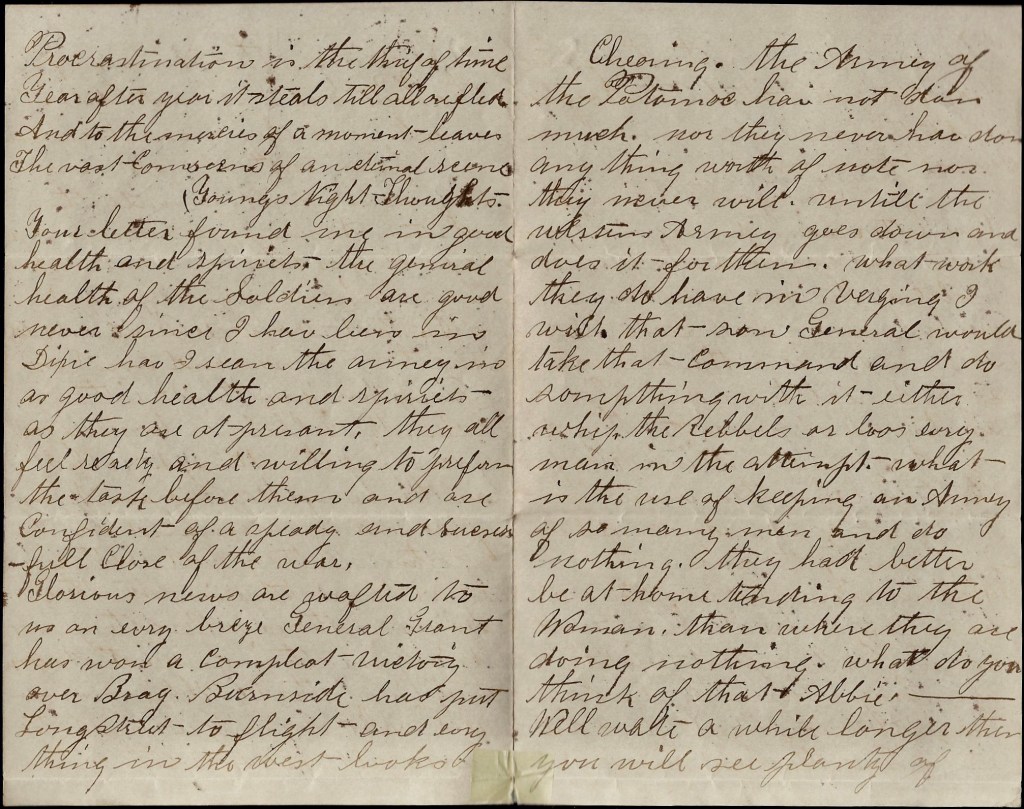 Procrastination is the thief of time
Year after year it steals till all are fled
And to the mercies of a moment leaves
The vast Conserns of an eternal scene
(Youngs Night Thoughts.
Your letter found me in good
health and spiriets. the geniral
health of the Soldiers are good
never since I hav been in
Dixie hav I sean the armey in
as good health and spiriets
as they are at presant, they all
feel redy and willing to preform
the task before them and are
Confident of a speady and sucess
-full Close of the war,
Glorious news are wafted to
us on evry breze General Grant
has won a Compleat victory
over Brag. Burnside has put
Longstreet to flight and evry
thing in the west looks
Chearing. the Armey of
the Potomac hav not don
much. nor they never hav don
any thing worth of note nor
they never will. untill the
western Armey goes down and
does it for them. what work
they do have in Verging I
wish that som General would
take that Command and do
sompthing with it either
whip the Rebbels or loos evry
man in the attempt. what
is the use of keeping an Armey
of so many men and do
nothing. they had better
be at home tending to the
Woman. than where they are
doing nothing. what do you
think of that Abbie.
Well waite a while longer then
you will see planty of